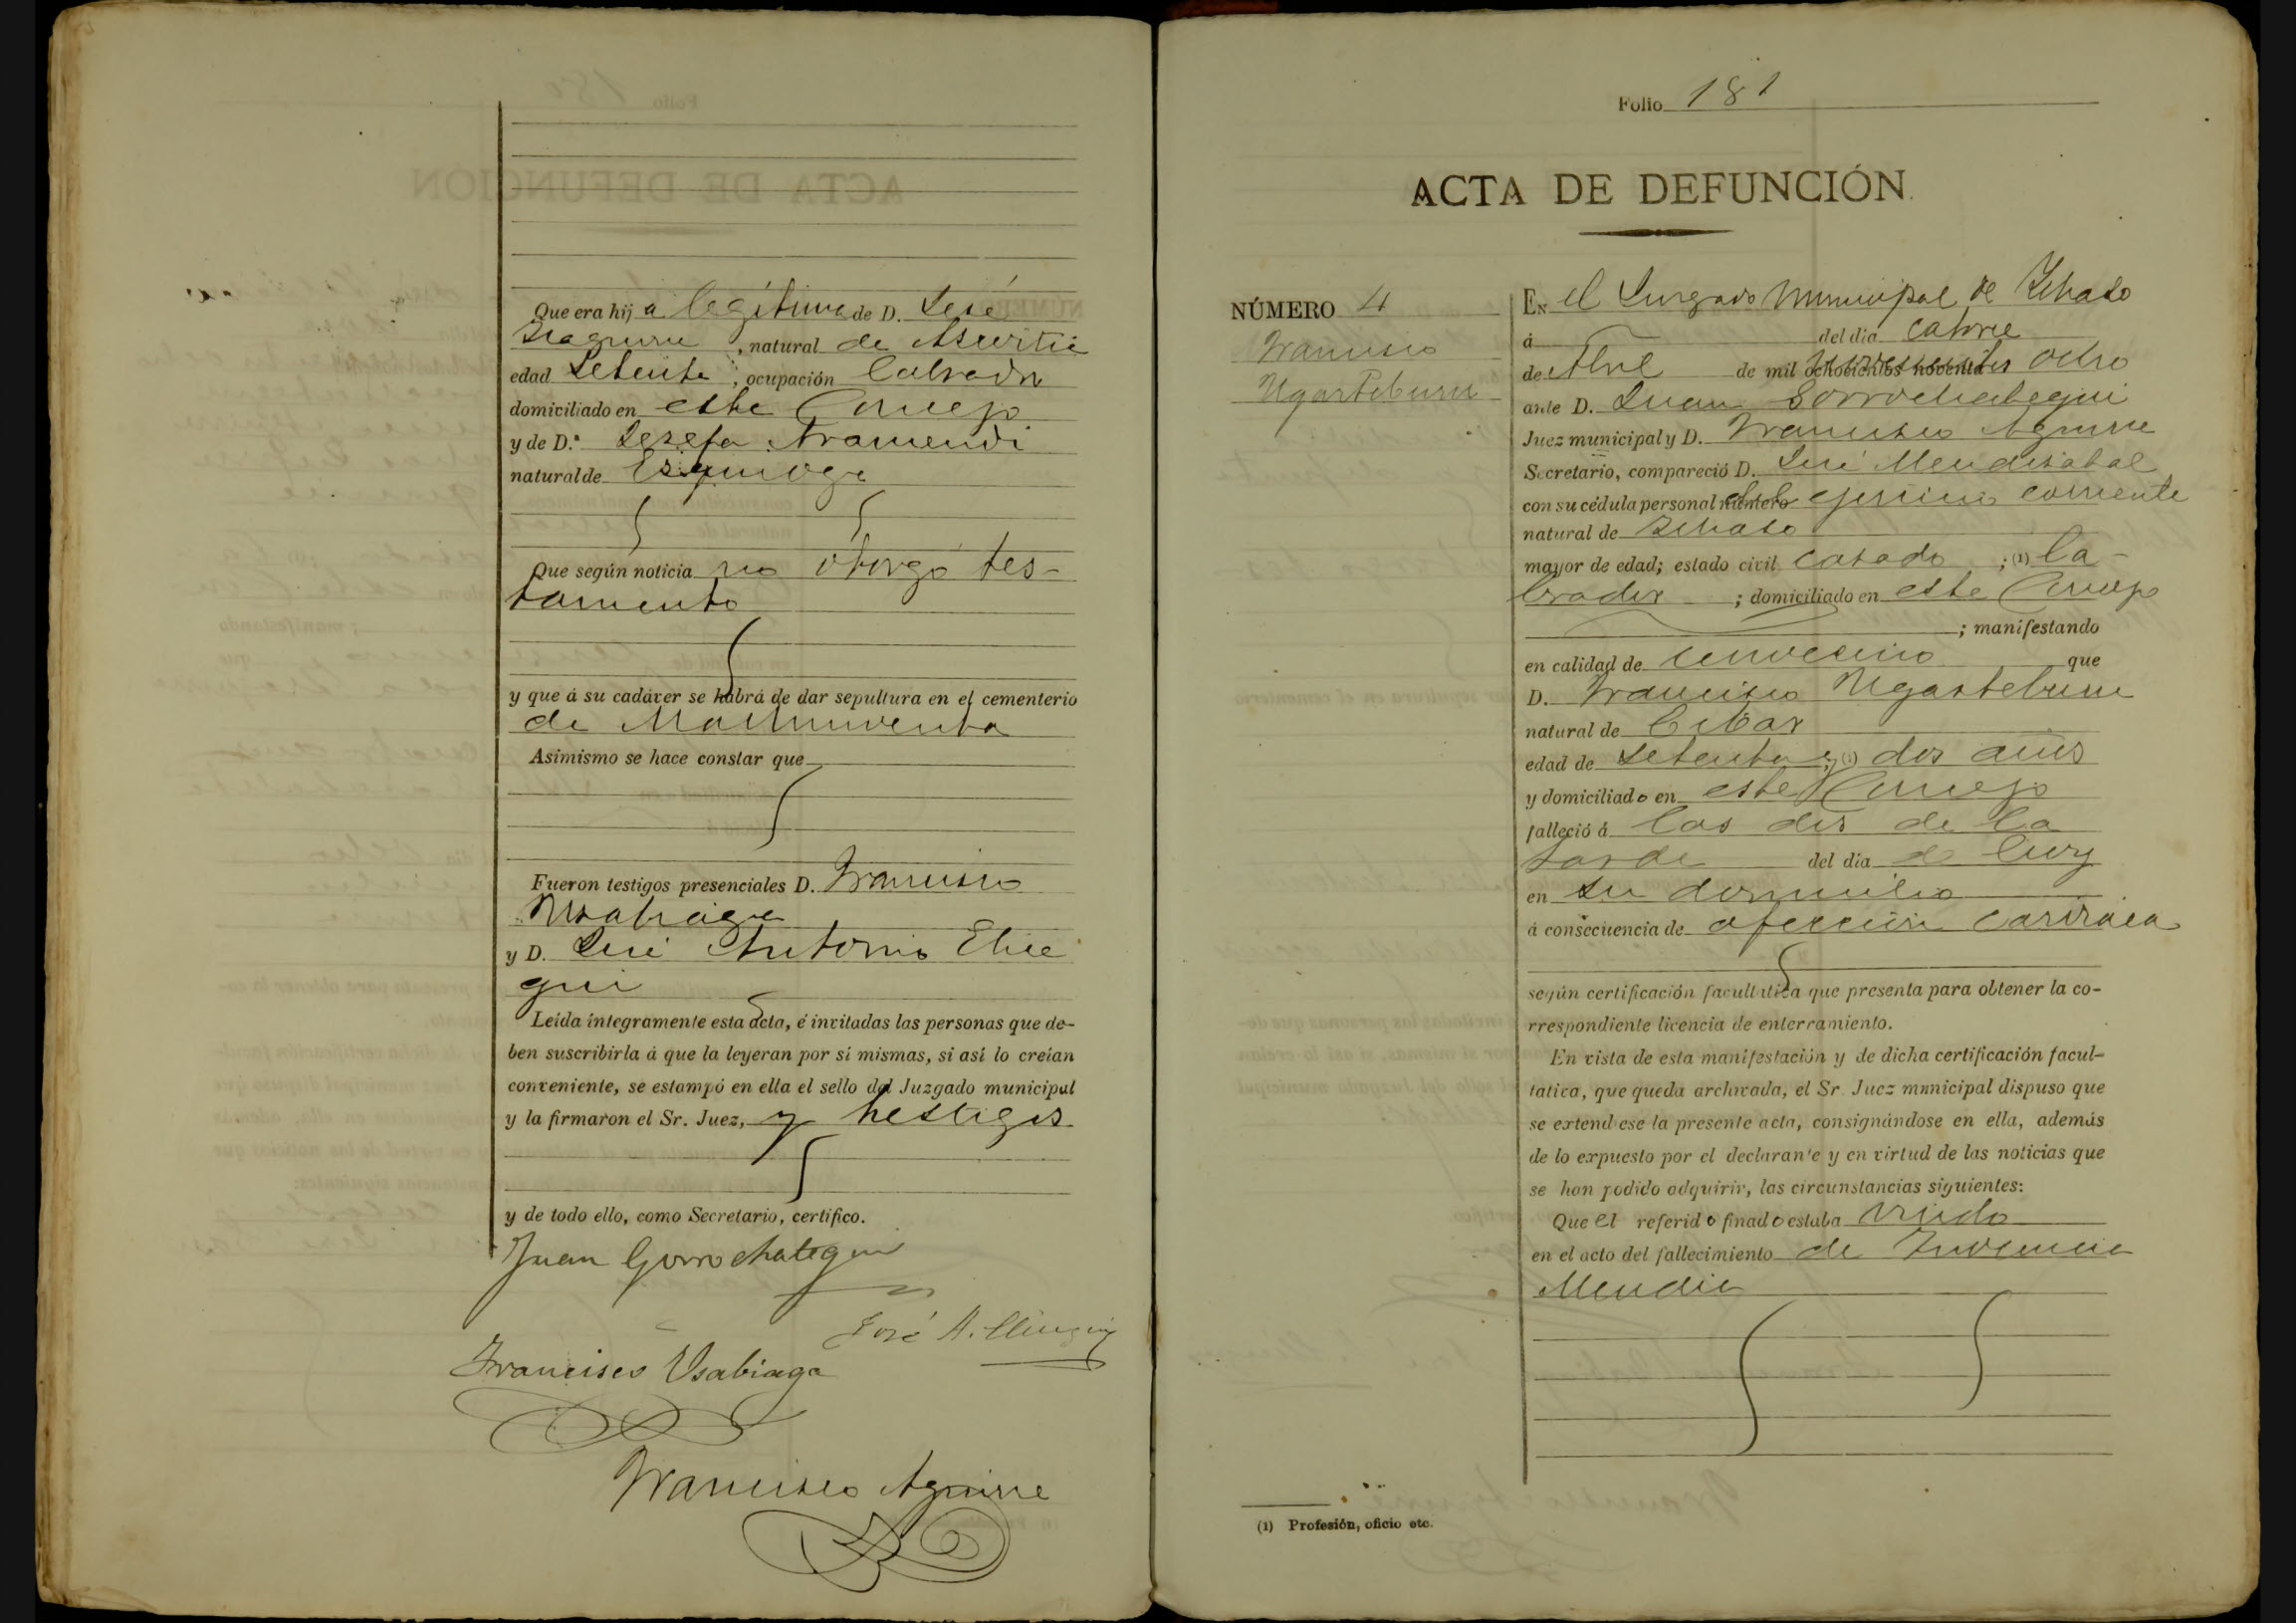 Que era hija legítima de D. José
Izaguirre, natural de Azcoitia
edad setenta, ocupación labrador
domiciliado en este Concejo
y de D.ª Josefa Aramendi
natural de Ezquioga
Que según noticia no otorgó tes-
tamento
y que á su cadáver se habrá de dar sepultura en el cementerio
de
Asimismo se hace constar que
Fueron testigos presenciales D. Francisco
Usabiaga
y D. José Antonio
Leída íntegramente esta acta, é invitadas las personas que de-
ben suscribirla á que la leyeran por sí mismas, si así lo creían
conveniente, se estampó en ella el sello del Juzgado municipal
y la firmaron el Sr. Juez, y testigos
y de todo ello, como Secretario, certifico.
Juan Gorrochategui
José A.
Francisco Usabiaga
Francisco Aguirre
Folio 181
ACTA DE DEFUNCIÓN
NÚMERO 4
Francisco
Ugarteburu
En el Juzgado Municipal de Ichaso
á del día catorce
de Abril de mil ochocientos noventa novecientos ocho
ante D. Juan Gorrochategui
Juez municipal y D. Francisco Aguirre
Secretario, compareció D. José Mendizabal
con su cédula personal número del ejercicio corriente
natural de Ichaso
mayor de edad; estado civil casado ; (1) la-
brador ; domiciliado en este Concejo
; manifestando
en calidad de convecino que
D. Francisco Ugarteburu
natural de Eibar
edad de setenta y (1) dos años
y domiciliado en este Concejo
falleció á las dos de la
tarde del día de hoy
en su domicilio
á consecuencia de afección cardiaca
según certificación facultativa que presenta para obtener la co-
rrespondiente licencia de enterramiento.
En vista de esta manifestación y de dicha certificación facul-
tativa, que queda archivada, el Sr. Juez municipal dispuso que
se extendiese la presente acta, consignándose en ella, además
de lo expuesto por el declarante y en virtud de las noticias que
se han podido adquirir, las circunstancias siguientes:
Que el referido finado estaba viudo
en el acto del fallecimiento de Inocencia
Mendia
(1) Profesión, oficio etc.